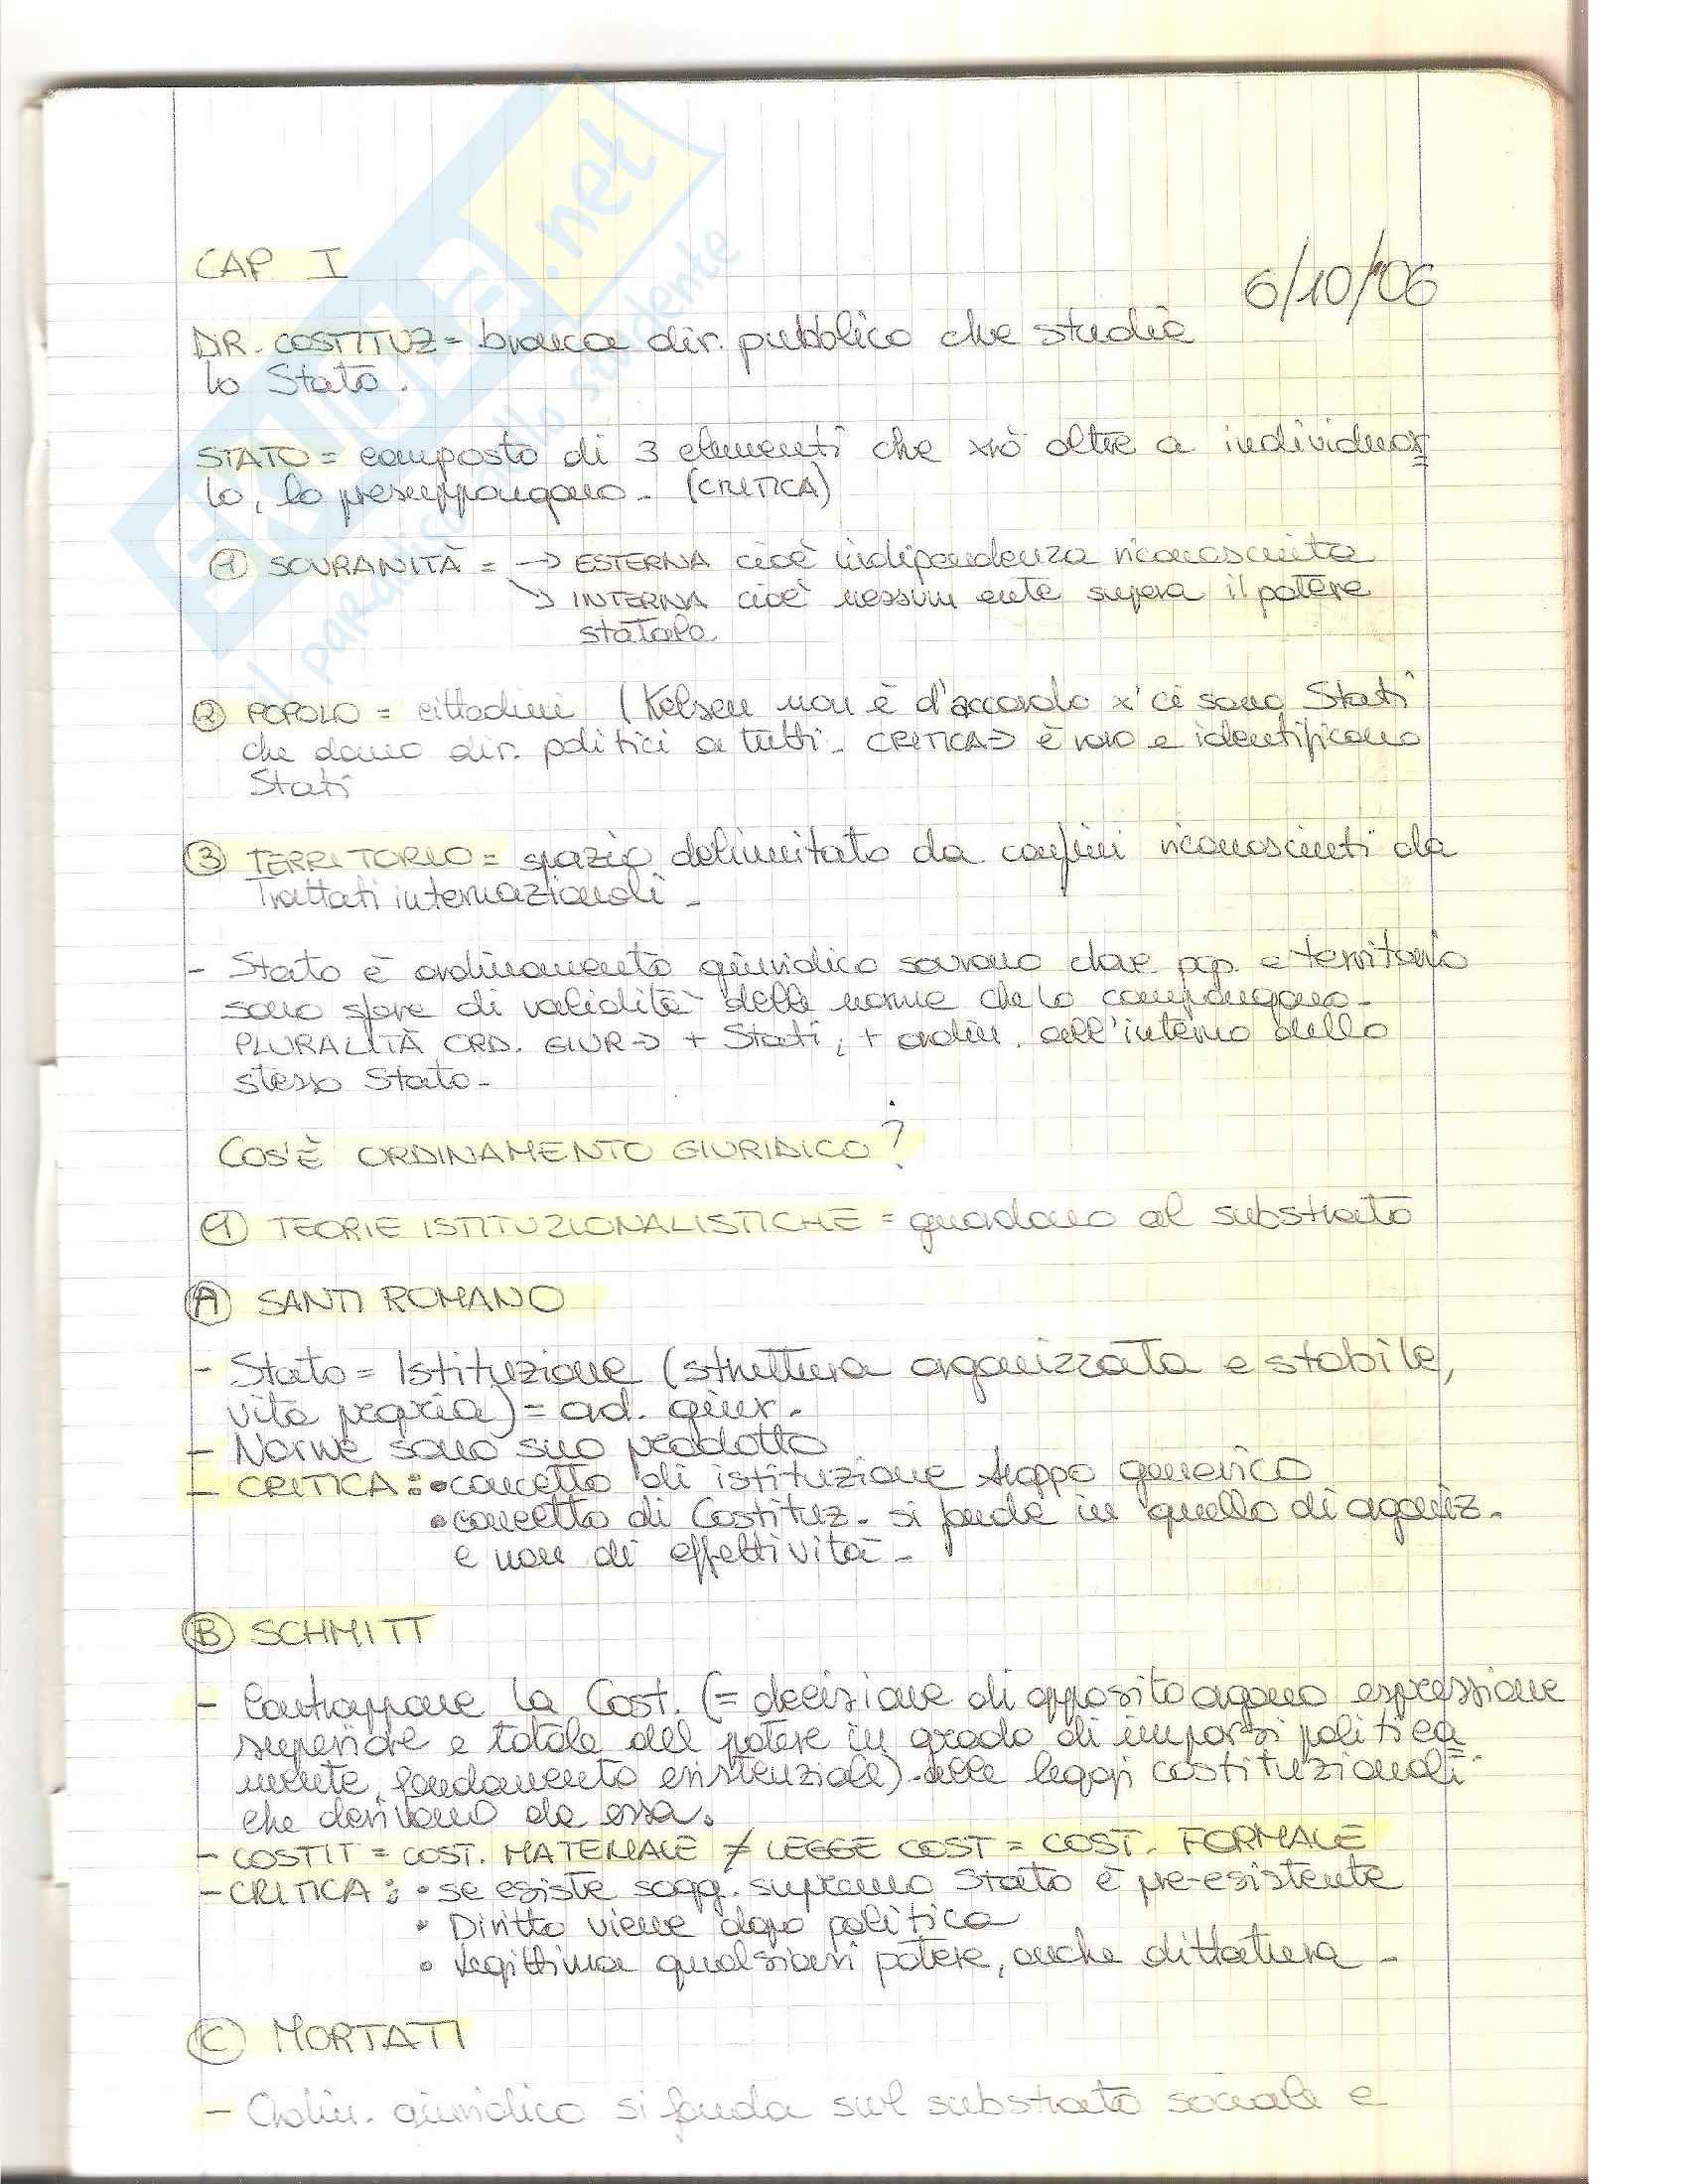 CAP. I
6/10/'06
DIR. COSTITUZ = branca dir. pubblico che studia
lo Stato.
STATO = composto di 3 elementi che xrò oltre a individuar
lo, lo presuppongono - (CRITICA)
① SOVRANITÀ = → ESTERNA cioè indipendenza riconosciuta
↘ INTERNA cioè nessun ente supera il potere
statale.
② POPOLO = cittadini (Kelsen non è d'accordo x' ci sono Stati
che danno dir. politici a tutti - CRITICA → è raro e identificano
Stati
③ TERRITORIO = spazio delimitato da confini riconosciuti da
Trattati internazionali -
- Stato è ordinamento giuridico sovrano dove pop. e territorio
sono sfere di validità delle norme che lo compongono -
PLURALITÀ ORD. GIUR → + Stati, + ordin. all'interno dello
stesso Stato -
COS'È ORDINAMENTO GIURIDICO?
① TEORIE ISTITUZIONALISTICHE = guardano al substrato
Ⓐ SANTI ROMANO
- Stato = Istituzione (struttura organizzata e stabile,
vita propria) = ord. giur.
- Norme sono suo prodotto
- CRITICA: • concetto di istituzione troppo generico
• concetto di Costituz. si fonde in quello di organiz.
e non di effettività -
Ⓑ SCHMITT
- Contrappone la Cost. (= decisione di apposito organo espressione
superiore e totale del potere in grado di imporsi politica
mente, fondamento esistenziale) alle leggi costituzionali
che derivano da essa.
- COSTIT = COST. MATERIALE ≠ LEGGE COST = COST. FORMALE
- CRITICA: • se esiste sogg. supremo Stato è pre-esistente
• Diritto viene dopo politica
• Legittima qualsiasi potere, anche dittatura -
Ⓒ MORTATI
- Ordin. giuridico si fonda sul substrato sociale e
SKUOLA.net
il paradiso dello studente